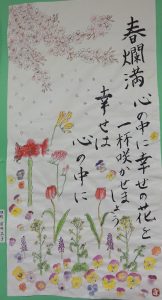 春爛満
心の中に幸せの花を
一杯咲かせましょう
幸せは
心の中に